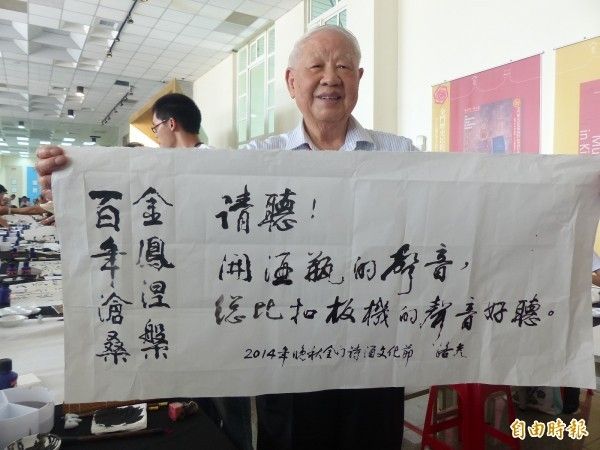 金鳳涅槃
百年滄桑
請聽！
開酒瓶的聲音，
總比扣板機的聲音好聽。
2014年晚秋金门詩酒文化節
自由時報